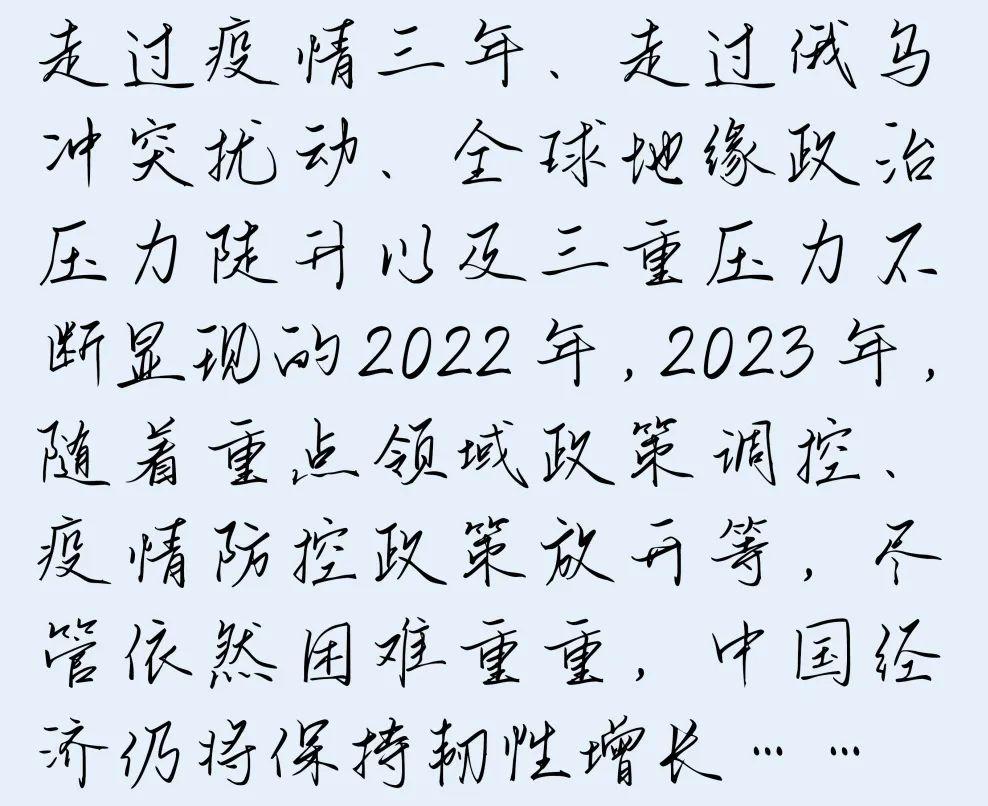 走过疫情三年、走过俄乌
冲突扰动、全球地缘政治
压力陡升以及三重压力不
断显现的2022年,2023年,
随着重点领域政策调控、
疫情防控政策放开等,尽
管依然困难重重,中国经
济仍将保持韧性增长……